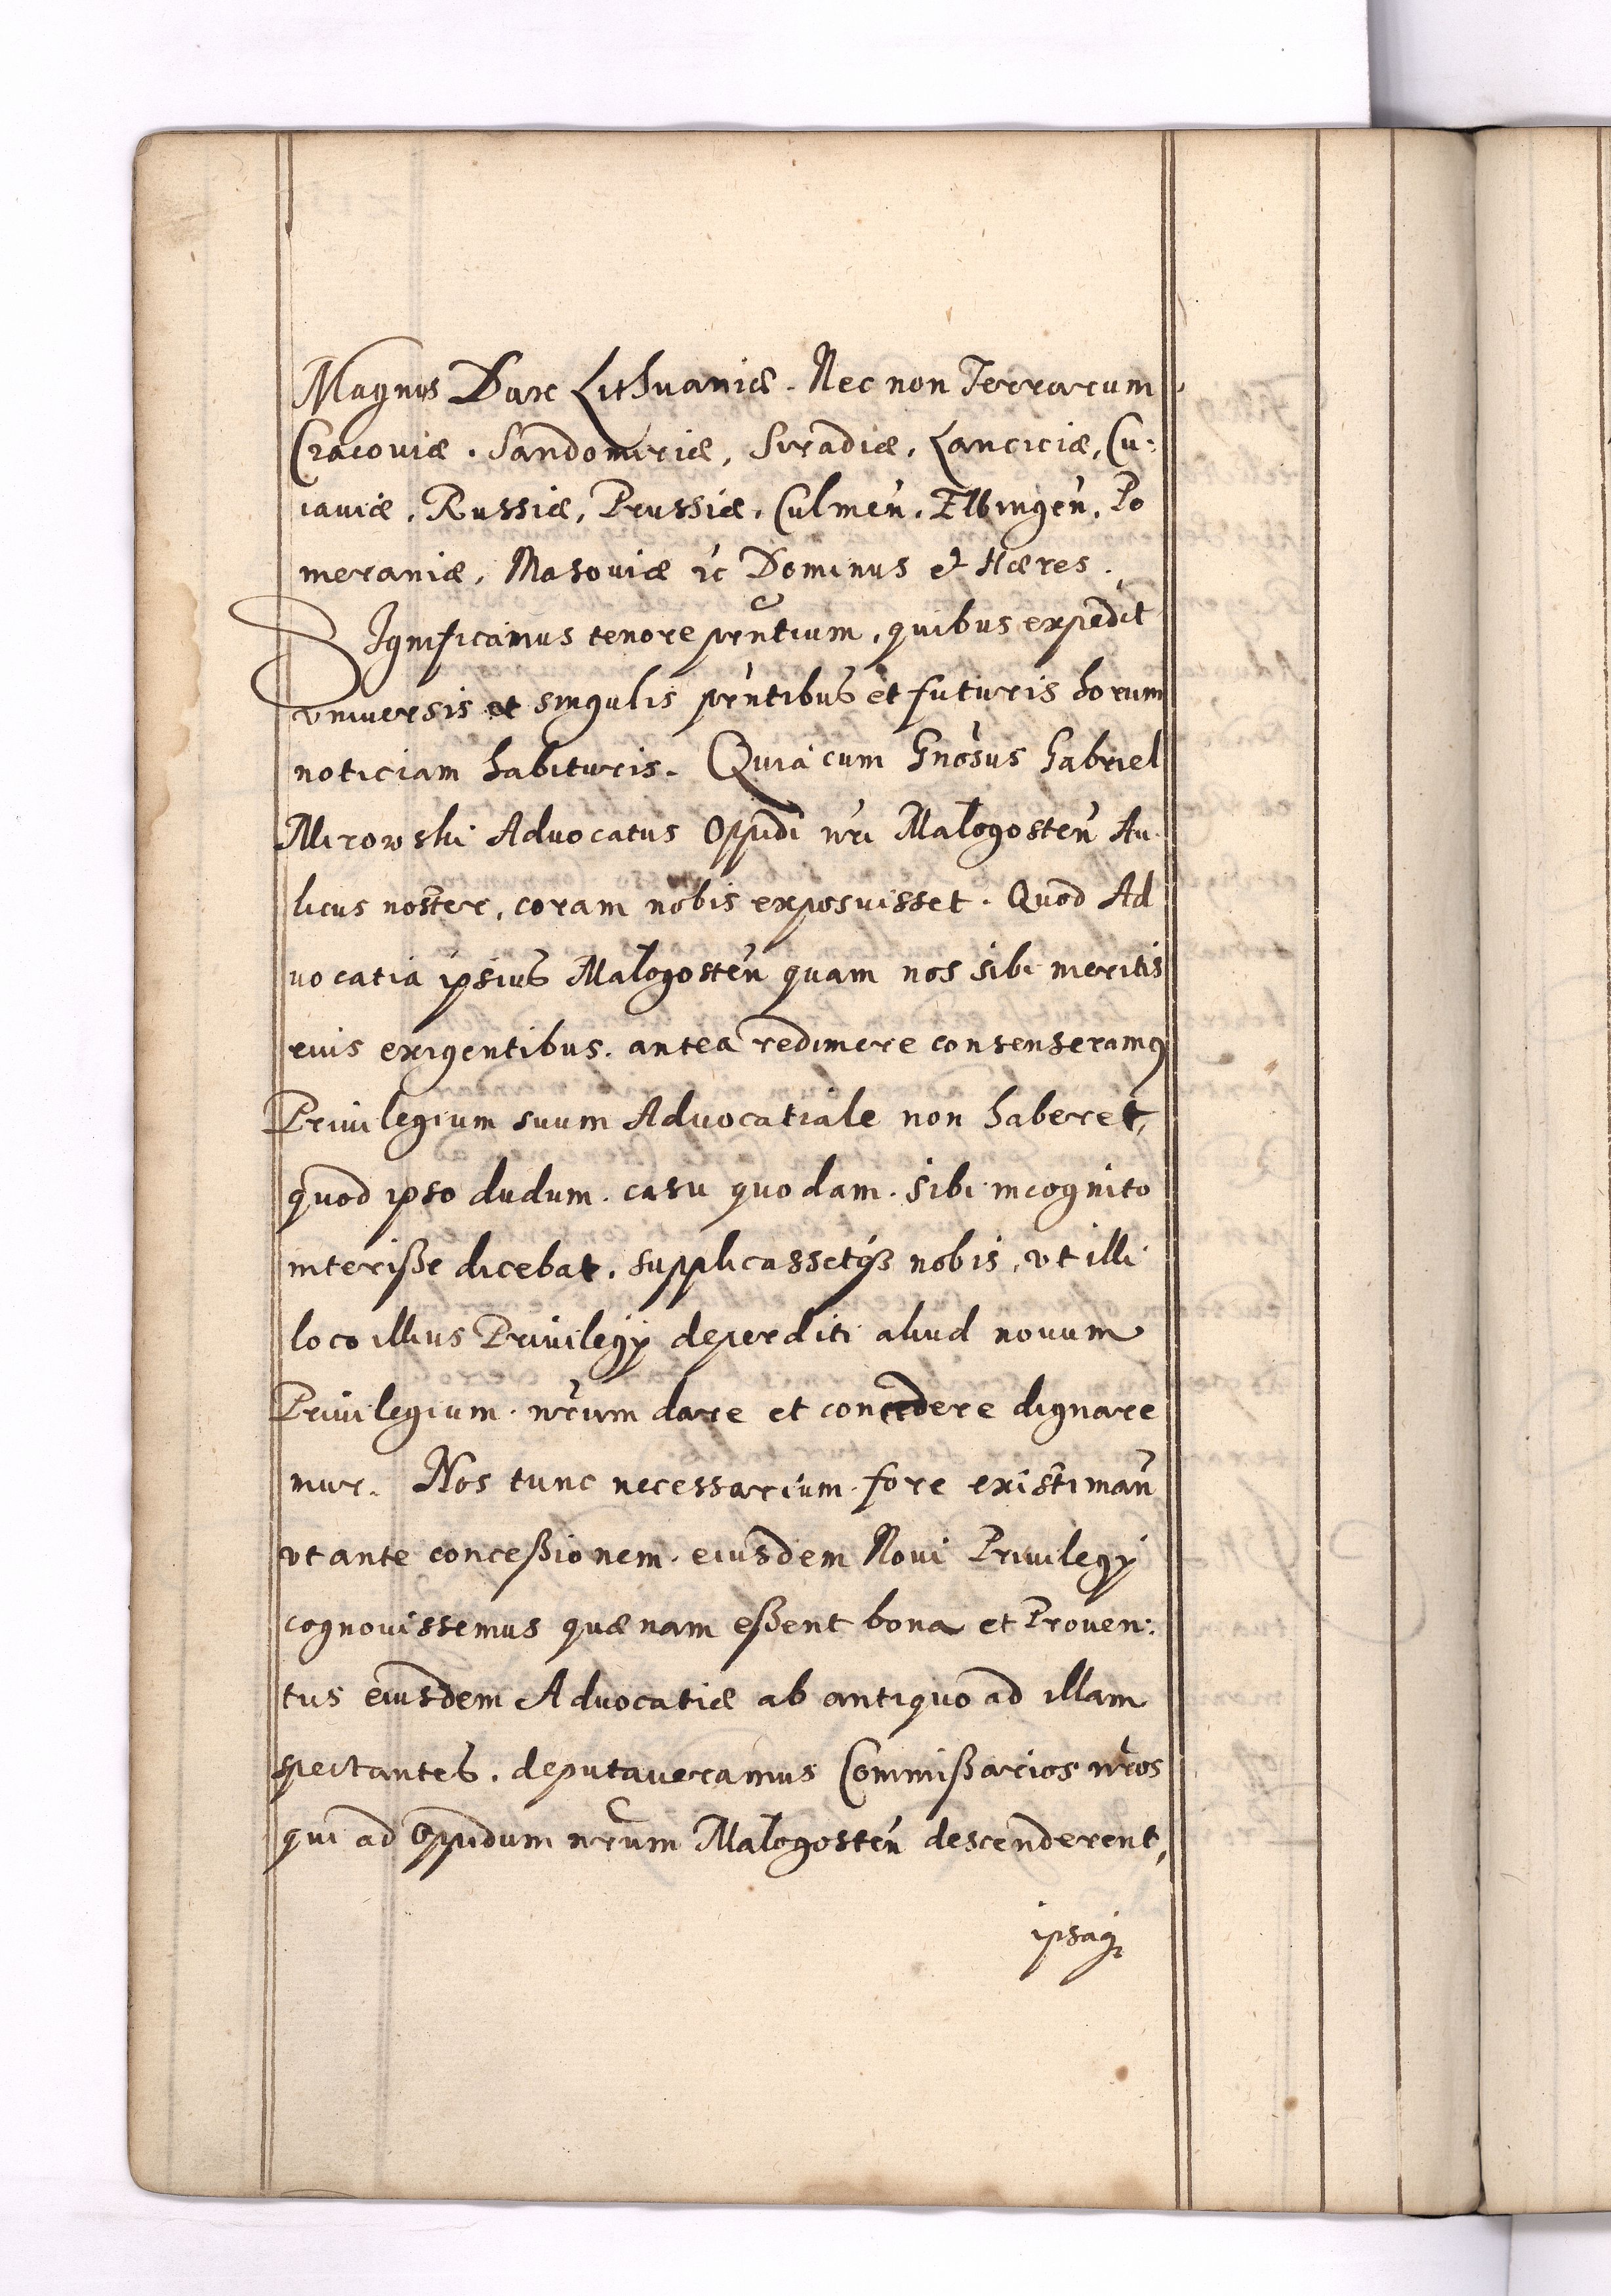 Magnus Dux Lithuaniæ. Nec non Terrarum
Cracoviæ. Sandomiriæ, Siradiæ, Lanciciæ, Cu:
iaviæ, Russiæ, Prussiæ, Culmeń, Elbingeń, Po
meraniæ, Masoviæ ꝛc Dominus et Hæres.
SIgnificamus tenore prńtium, quibus expedit
vniversis et singulis prńtibus et futuris horum
noticiam habituris. Quia cum Gnōsus Gabriel
Mirowski Advocatus Oppidi nr̄i Małogosteń Au
licus noster, coram nobis exposuisset. Quod Ad
vocatia ipsius Małogosteń quam nos sibi meritis
eius exigentibus. antea redimere consenseramꝰ
Privilegium suum Advocatiale non haberet,
quod ipso dudum. casu quodam. sibi incognito
interiße dicebat. supplicassetqȝ nobis, vt illi
loco illius Privilegij deperditi aliud novum
Privilegium. nr̄um dare et concedere dignare
mur. Nos tunc necessarium. fore existimań
vt ante conceßionem. eiusdem Novi Privilegij
cognovissemus quænam eßent bona et Proven:
tus eiusdem Advocatiæ ab antiquo ad illam
spectantes. deputaveramus Commißarios nr̄os
qui ad Oppidum nr̄um Małogosteń descenderent,
ipsaqȝ